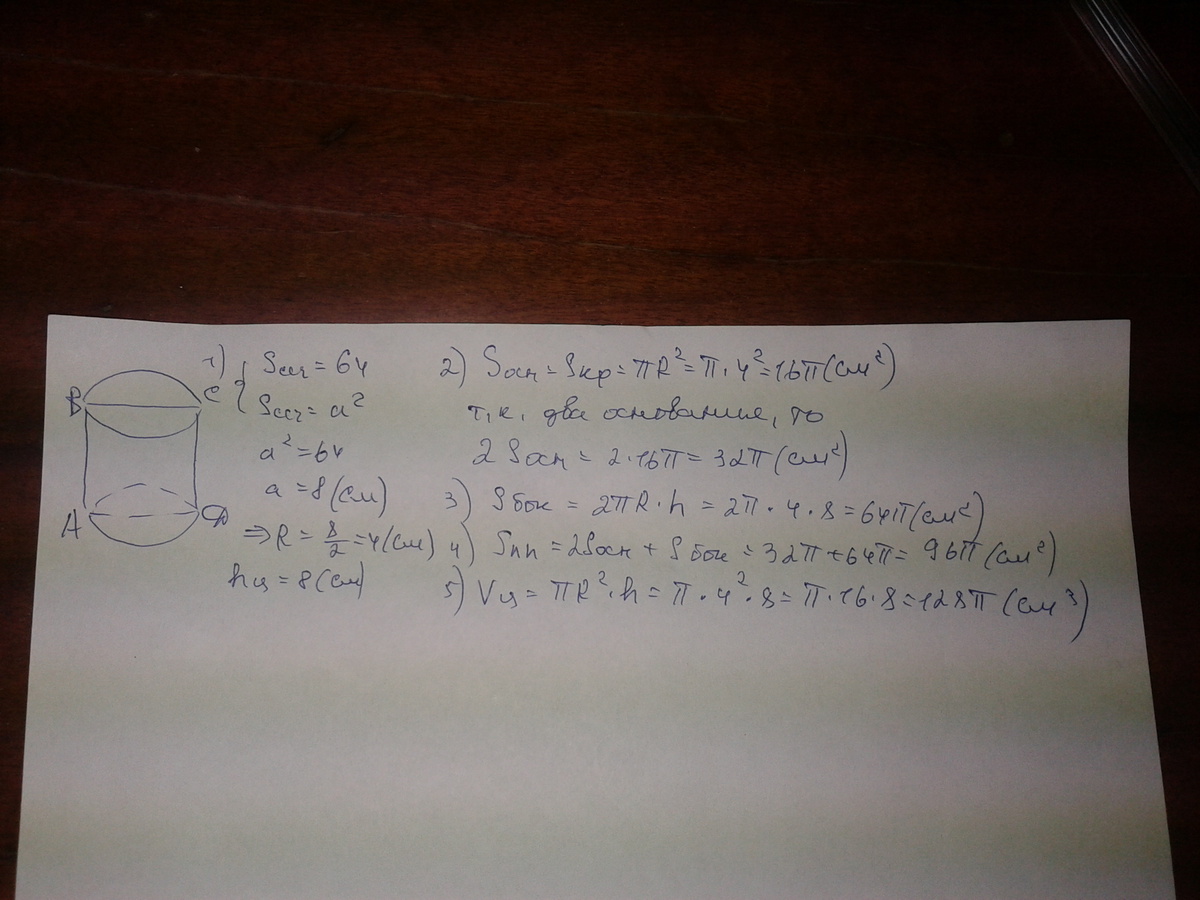 B C
A D
1) { Sсеч = 64
Sсеч = a²
a² = 64
a = 8 (см)
⇒ R = 8/2 = 4 (см)
hц = 8 (см)
2) Sосн = Sкр = πR² = π · 4² = 16π (см²)
т.к. два основание, то
2 Sосн = 2 · 16π = 32π (см²)
3) Sбок = 2πR · h = 2π · 4 · 8 = 64π (см²)
4) Sпп = 2Sосн + Sбок = 32π + 64π = 96π (см²)
5) Vц = πR² · h = π · 4² · 8 = π · 16 · 8 = 128π (см³)